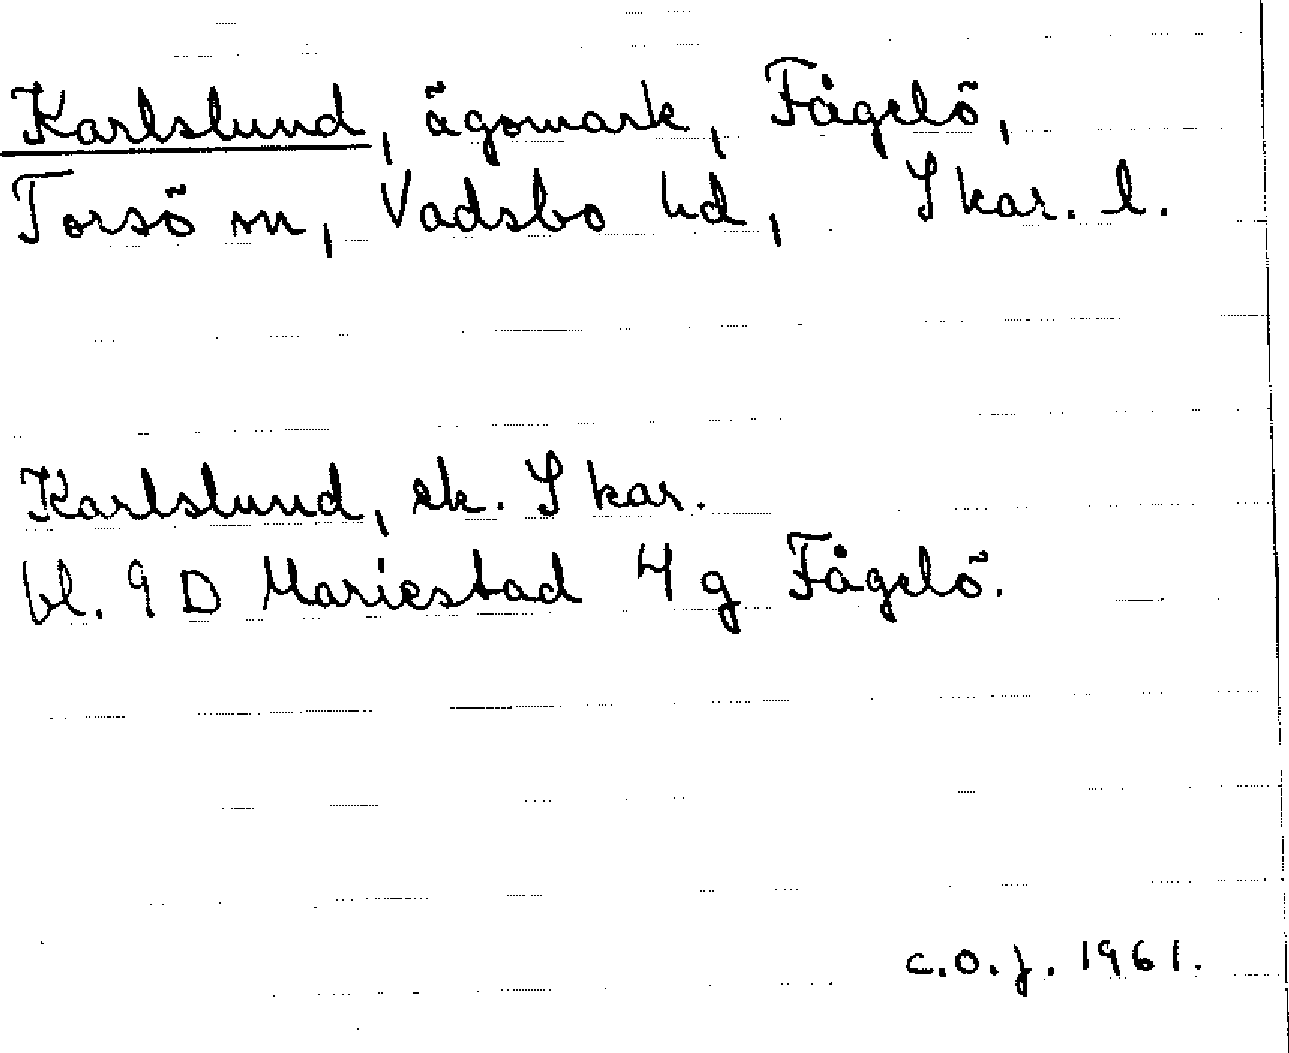 Karlslund, ägomark, Fågelö,
Torsö sn, Vadsbo hd, Skar. l.
Karlslund, ek. Skar.
bl. 9 D Mariestad 4 g Fågelö.
c.o.j. 1961.